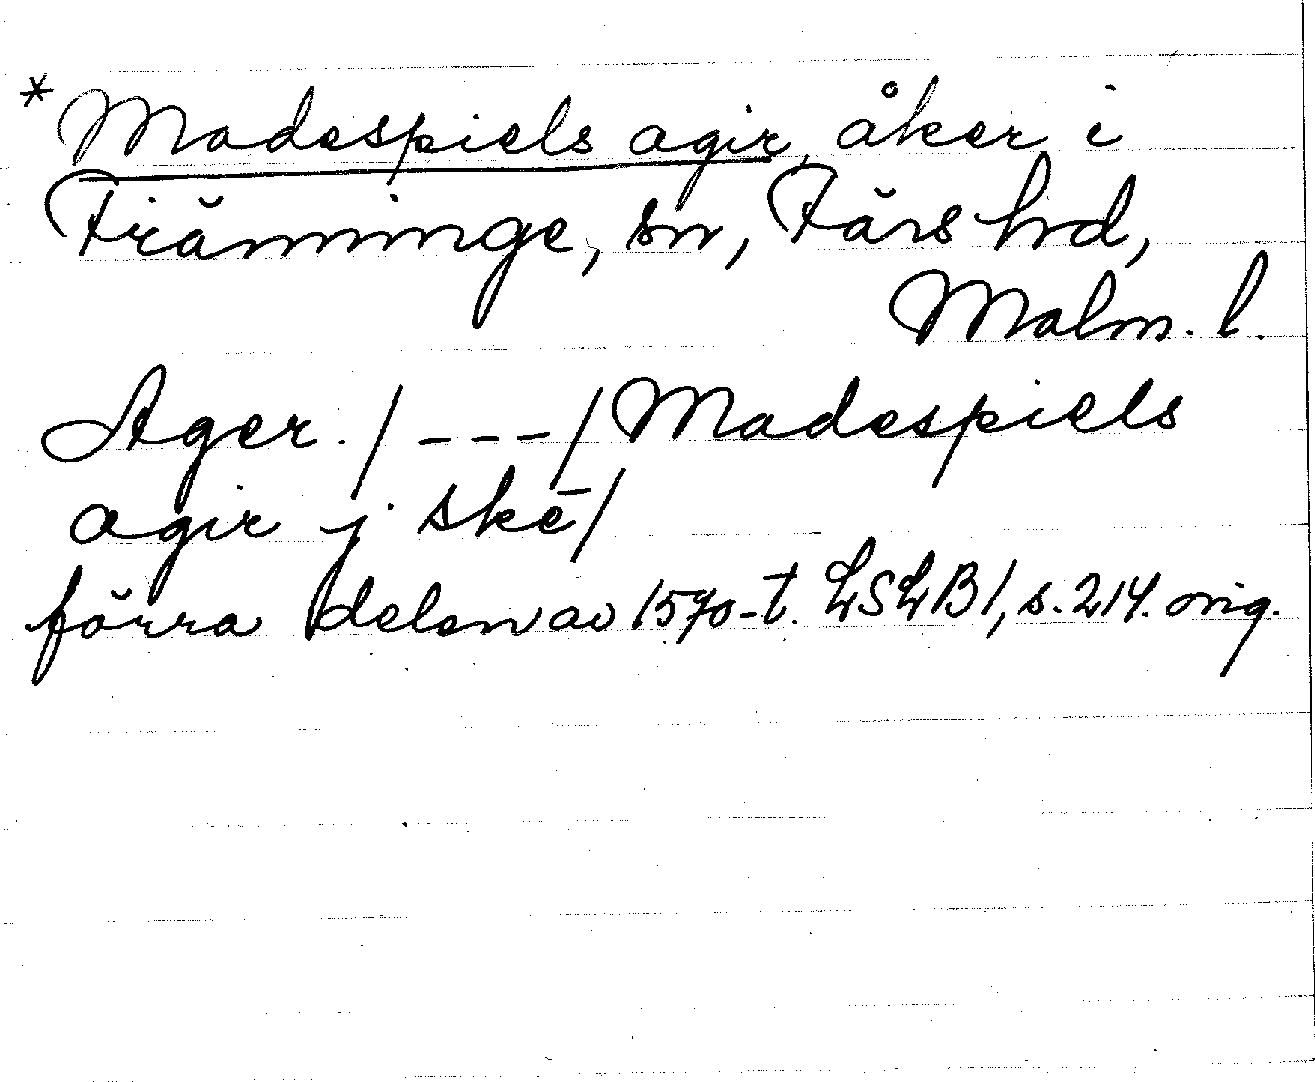 * Madespiels agir, åker i
Fränninge, sn, Färs hd,
Malm. l.
Ager. / - - - / Madespiels
agir j skē /
förra delen av 1570-t. LSLB 1, s. 214. orig.